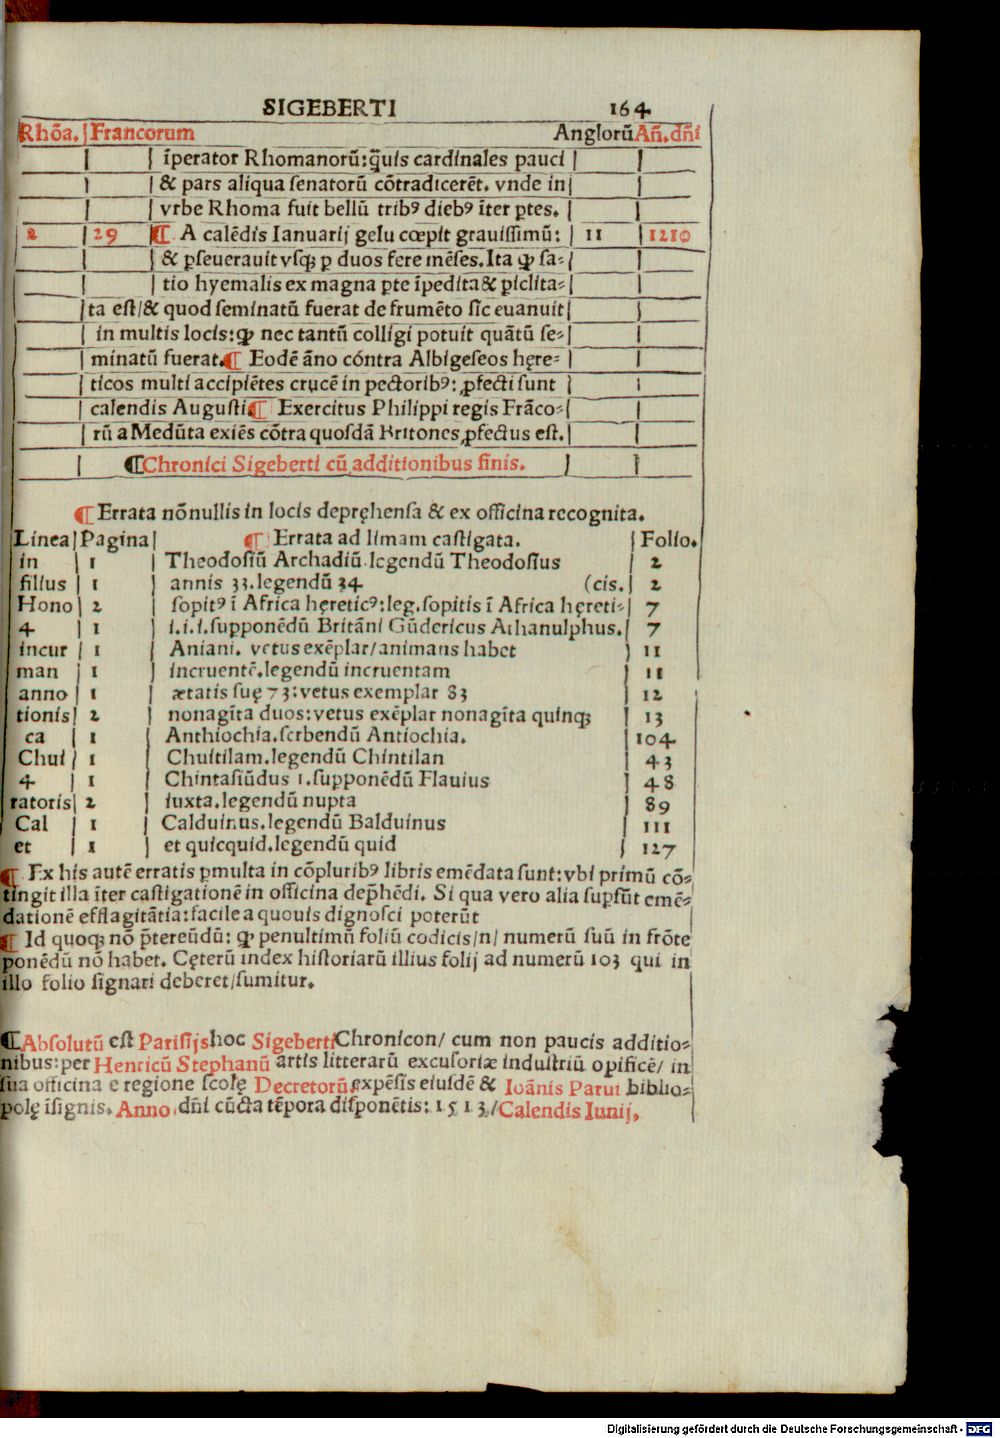 SIGEBERTI 164
Rhõa. Francorum Anglorũ Añ. dñi
ĩperator Rhomanorũ: q̃uis cardinales pauci
& pars aliqua ſenatorũ cõtradicerẽt. vnde in
vrbe Rhoma fuit bellũ tribꝰ diebꝰ ĩter ꝑtes.
2 29 ¶ A calẽdis Ianuarij gelu cœpit grauiſſimũ: 11 1210
& ꝑſeuerauit vſqꝫ ꝑ duos fere mẽſes. Ita ꝙ ſa-
tio hyemalis ex magna ꝑte ĩpedita & ꝑiclita-
ta eſt/& quod ſeminatũ fuerat de frumẽto ſic euanuit
in multis locis: ꝙ nec tantũ colligi potuit quãtũ ſe-
minatũ fuerat. ¶ Eodẽ ãno cóntra Albigeſeos hęre-
ticos multi accipiẽtes crucẽ in pectoribꝰ: ꝓfecti ſunt
calendis Auguſti ¶ Exercitus Philippi regis Frãco-
rũ a Medũta exiẽs cõtra quoſdã Britones ꝓfectus eſt.
¶ Chronici Sigeberti cũ additionibus finis.
¶ Errata nõnullis in locis depręhenſa & ex officina recognita.
Linea Pagina ¶ Errata ad limam caſtigata. Folio.
in 1 Theodoſiũ Archadiũ legendũ Theodoſius 2
filius 1 annis 33. legendũ 34 (cis. 2
Hono 2 ſopitꝰ ĩ Africa hęreticꝰ: leg. ſopitis ĩ Africa hęreti- 7
4 1 i.i.i. ſupponẽdũ Britãni Gũdericus Athanulphus. 7
incur 1 Aniani. vetus exẽplar/animans habet 11
man 1 incruentẽ. legendũ incruentam 11
anno 1 ætatis ſuę 73: vetus exemplar 83 12
tionis 2 nonagĩta duos: vetus exẽplar nonagĩta quinqꝫ 13
ca 1 Anthiochia. ſcrbendũ Antiochia. 104
Chui 1 Chuitilam. legendũ Chintilan 43
4 1 Chintaſiũdus 1. ſupponẽdũ Flauius 48
ratoris 2 iuxta. legendũ nupta 89
Cal 1 Calduinus. legendũ Balduinus 111
et 1 et quicquid. legendũ quid 127
¶ Ex his autẽ erratis ꝑmulta in cõpluribꝰ libris emẽdata ſunt: vbi primũ cõ-
tingit illa ĩter caſtigationẽ in officina dep̃hẽdi. Si qua vero alia ſupſũt emẽ-
dationẽ efflagitãtia: facile a quouis dignoſci poterũt
¶ Id quoqꝫ nõ p̃tereũdũ: ꝙ penultimũ foliũ codicis/n/ numerũ ſuũ in frõte
ponẽdũ nõ habet. Cęterũ index hiſtoriarũ illius folij ad numerũ 103 qui in
illo folio ſignari deberet/ſumitur.
¶ Abſolutũ eſt Pariſijs hoc Sigeberti Chronicon/ cum non paucis additio-
nibus: per Henricũ Stephanũ artis litterarũ excuſoriæ induſtriũ opificẽ/ in
ſua officina e regione ſcolę Decretorũ expẽſis eiuſdẽ & Ioãnis Parui biblio-
polę ĩſignis. Anno dñi cũcta tẽpora diſponẽtis: 1513/ Calendis Iunij.
Digitalisierung gefördert durch die Deutsche Forschungsgemeinschaft - DFG